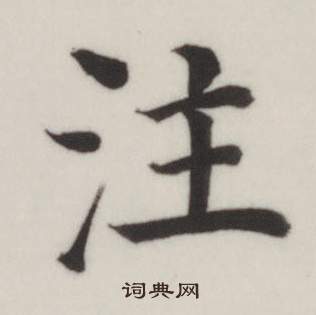 注
词典网